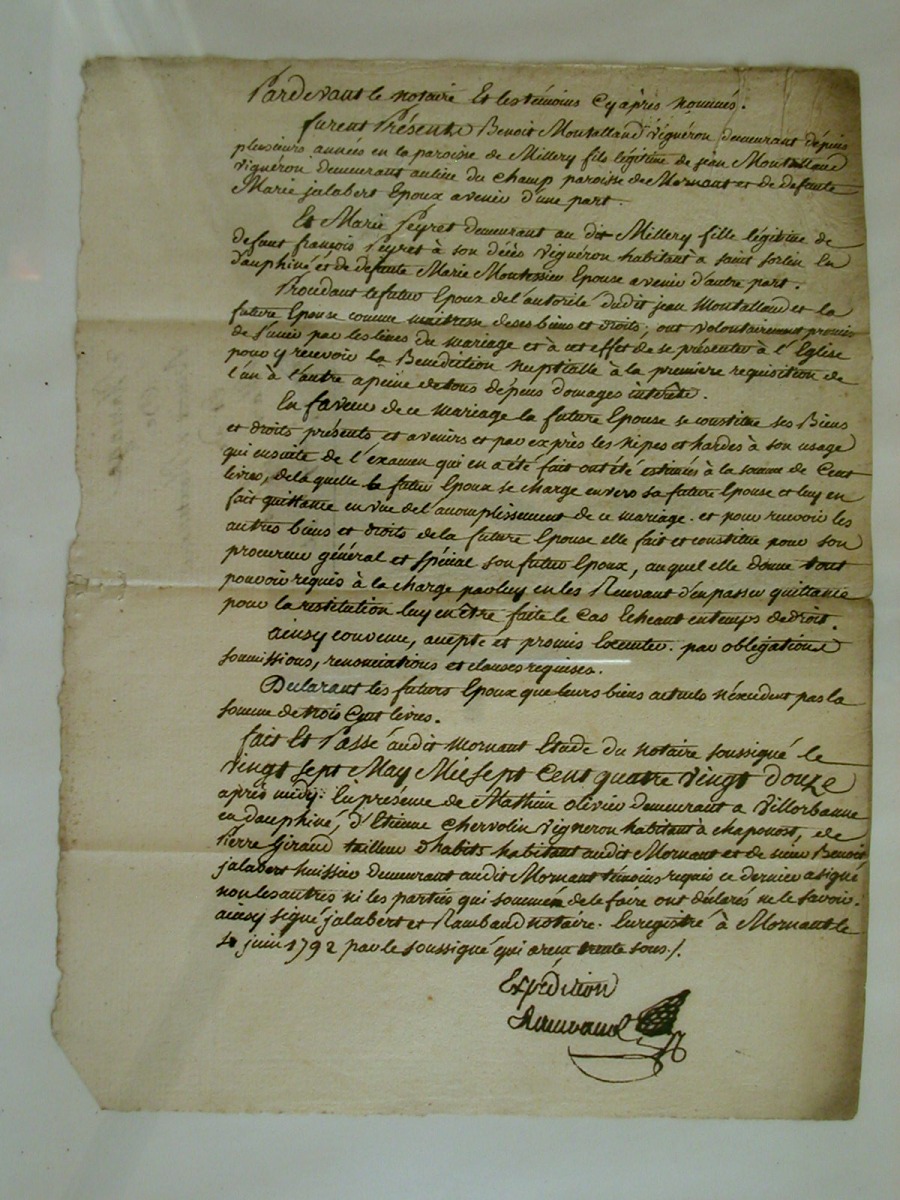 Pardevant le notaire Et les témoins Cy après nommés.
furent Présents Benoit Montalland vignéron demeurant dépuis
plusieurs années en la paroisse de Millery fils légitime de jean Montalland
vignéron demeurant au lieu du Champ paroisse de Mornant et de defunte
Marie jalabert Epoux avenir d'une part.
Et Marie Péyret demeurant au dit Millery fille légitime de
defunt françois Péyret à son décès vignéron habitant a saint sorlin En
dauphiné et de defunte Marie Epouse avenir d'autre part.
Procédant le futur Epoux de l'autorité dudit jean Montalland et la
future Epouse comme maitresse de ses biens et droits, ont volontairement promis
de s'unir par les liens du mariage et à cet effet de se présenter à l'Eglise
pour y recevoir la Bénédiction Nuptialle à la première requisition de
l'un à l'autre a peine de tous dépens domages intérêts.
En faveur de ce mariage la future Epouse se constitue ses Biens
et droits présents et avenirs et par exprès les nipes et hardes à son usage
qui ensuite de l'éxamen qui en a été fait ont été estimés à la somme de Cent
livres, de la quelle le futur Epoux se charge envers sa future Epouse et luy en
fait quittance en vue de l'acomplissement de ce mariage. et pour recevoir les
autres biens et droits de la future Epouse elle fait et constitue pour son
procureur général et spécial son futur Epoux, auquel elle donne tout
pouvoir requis à la charge par luy en les Recevant d'en passer quittance
pour la restitution luy en être faite le Cas Echeant en temps de droit.
ainsy convenu, acepté et promis Executer. par obligations
soumissions, renonciations et clauses requises.
Déclarant les futurs Epoux que leurs biens actuels n'éxcedent pas la
somme de trois Cent livres.
fait Et Passé audit Mornant Etude du notaire soussigné le
vingt sept May Mil sept Cent quatre vingt douze
après midy. En présence de Mathieu olivier demeurant a Villorbanne
en dauphiné, d'Etienne Chervolin vigneron habitant à chaponost, de
Pierre Giraud tailleur d'habits habitant audit Mornant et de sieur Benoit
jalabert huissier demeurant audit Mornant témoins requis ce dernier a signé
non les autres ni les parties qui sommées de le faire ont déclarés ne le savoir.
ainsy signé jalabert et Rambaud notaire. Enregistré à Mornant le
4 juin 1792 par le soussigné qui a reçu trente sous./.
Expédition
Rambaud